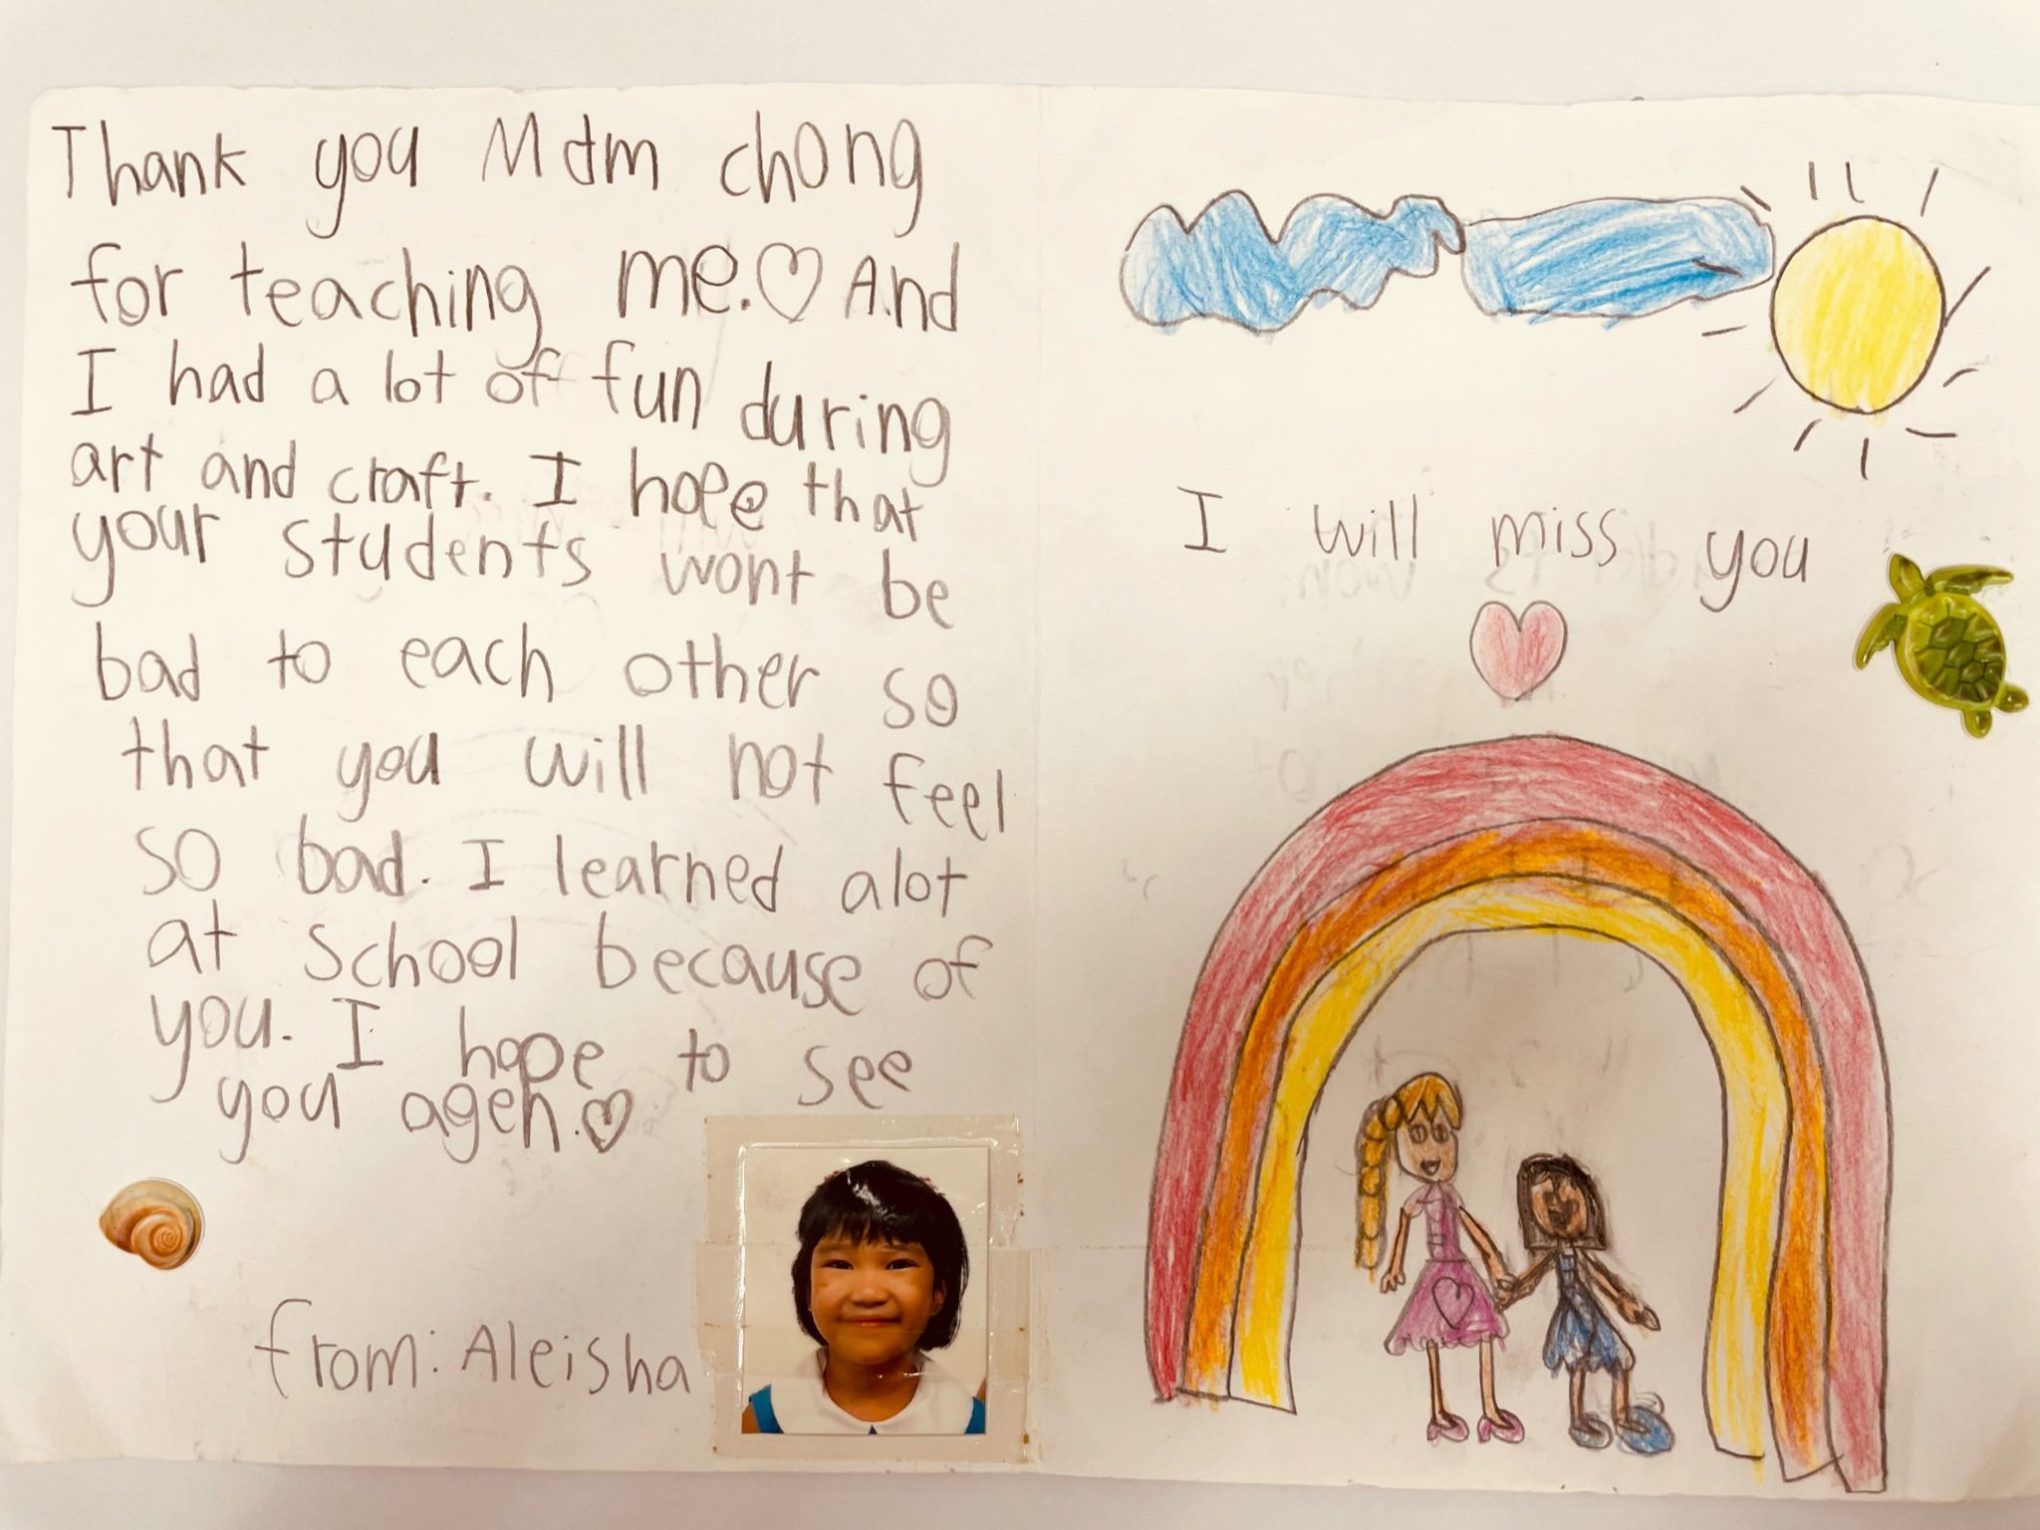 Thank you Mdm chong
for teaching me.♡ And
I had a lot of fun during
art and craft. I hope that
your students wont be
bad to each other so
that you will not feel
so bad. I learned alot
at School because of
you. I hope to see
you agen.♡
from: Aleisha
I will miss you